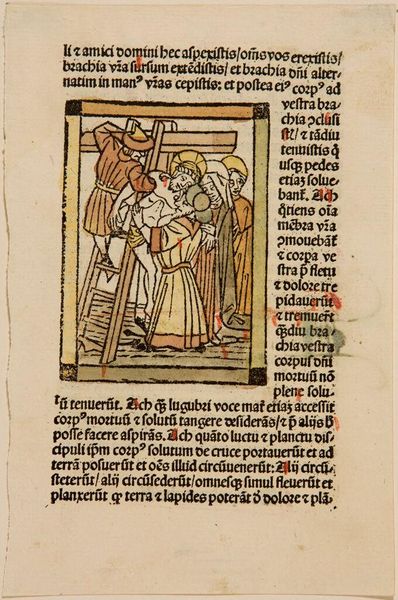 li et amici domini hec aspexistis/ om̃s vos erexistis/
brachia vr̃a sursum extẽdistis/ et brachia dñi alter-
natim in manꝰ vr̃as cepistis: et postea eiꝰ corpꝰ ad
vestra bra-
chia ꝯclusi
stis/ ⁊ tãdiu
tenuistis q̃
usqꝫ pedes
etiaꝫ solue-
bant̃. Ach
q̃tiens oĩa
mẽbra vr̃a
ꝯmouebãt̃
⁊ corpa ve
stra p̃ fletu
⁊ dolore tre
pidauerũt
⁊ tremuer̃t
qꝫdiu bra-
chia vestra
corpus dñi
mortuũ nõ
plene solu-
tũ tenuerũt. Ach qꝫ lugubri voce mat̃ etiaꝫ accessit
corpꝰ mortuũ ⁊ solutũ tangere desiderãs/ ⁊ p̃ alijs
posse facere aspirãs. Ach quãto luctu ⁊ planctu dis-
cipuli ip̃m corpꝰ solutum de cruce portauerũt et ad
terrã posuerũt et oẽs illud circũuenerũt: Alij circũ-
steterũt/ alij circũsederũt/ omnesqꝫ simul fleuerũt et
planxerũt terra ⁊ lapides poterãt dolore ⁊ plã-